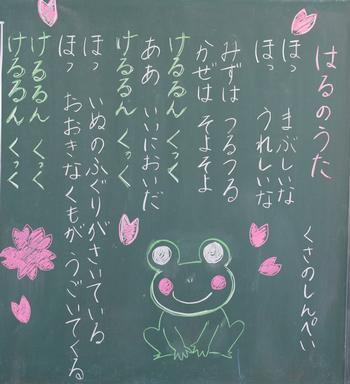 はるのうた
くさのしんぺい
ほっ　まぶしいな
ほっ　うれしいな
みずは　つるつる
かぜは　そよそよ
けるるん　くっく
ああ　いいにおいだ
けるるん　くっく
ほっ　いぬのふぐりがさいている
ほっ　おおきなくもが　うごいてくる
けるるん　くっく
けるるん　くっく